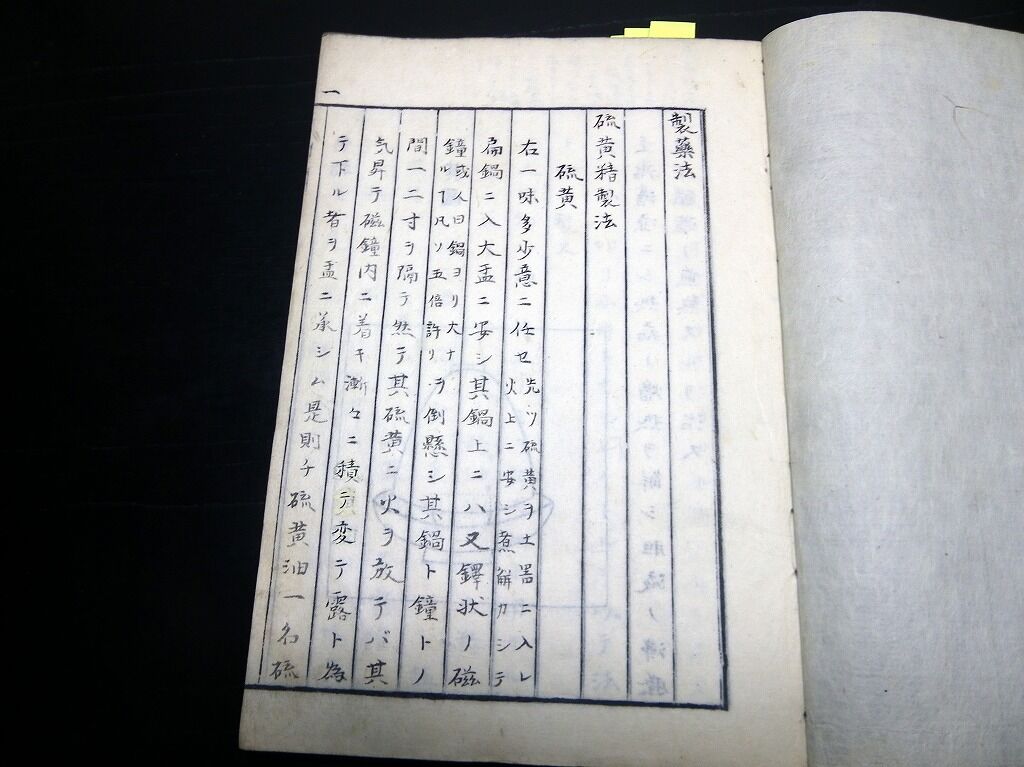 製藥法
硫黄精製法
硫黄
右一味多少意ニ任セ先ツ硫黄ヲ土器ニ入レ火上ニ安シ煮解カシテ
扁鍋ニ入大盂ニ安シ其鍋上ニハ又鐸状ノ磁
鐘或人曰鍋ヨリ大ナルヿ凡ソ五倍許リヲ倒懸シ其鍋ト鐘トノ
間一二寸ヲ隔テ然テ其硫黄ニ火ヲ放テバ其
気昇テ磁鐘内ニ着キ漸々ニ積テ変テ露ト為
テ下ル者ヲ盂ニ承シム是則チ硫黄油一名硫
一